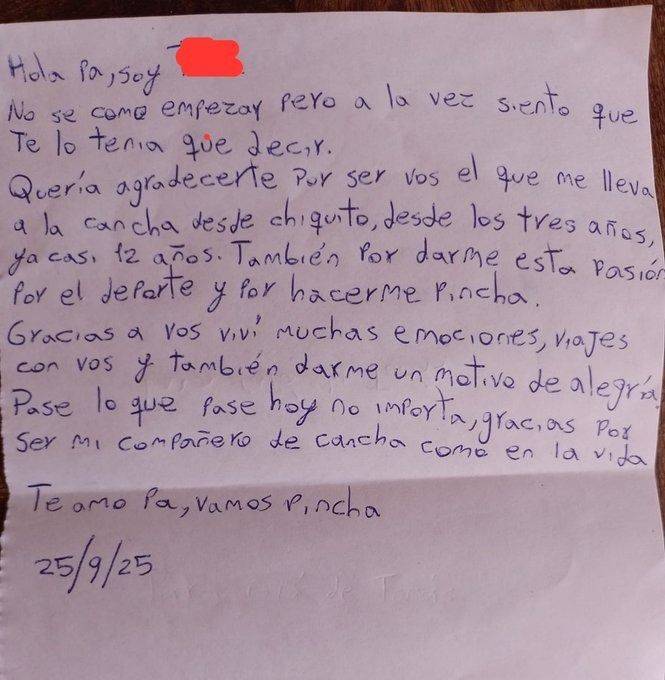 Hola Pa, soy
No se como empezar pero a la vez siento que
Te lo tenia que decir.
Quería agradecerte por ser vos el que me lleva
a la cancha desde chiquito, desde los tres años,
ya casi 12 años. También por darme esta pasión
por el deporte y por hacerme Pincha.
Gracias a vos viví muchas emociones, viajes
con vos y también darme un motivo de alegría.
Pase lo que pase hoy no importa, gracias por
ser mi compañero de cancha como en la vida
Te amo Pa, vamos Pincha
25/9/25